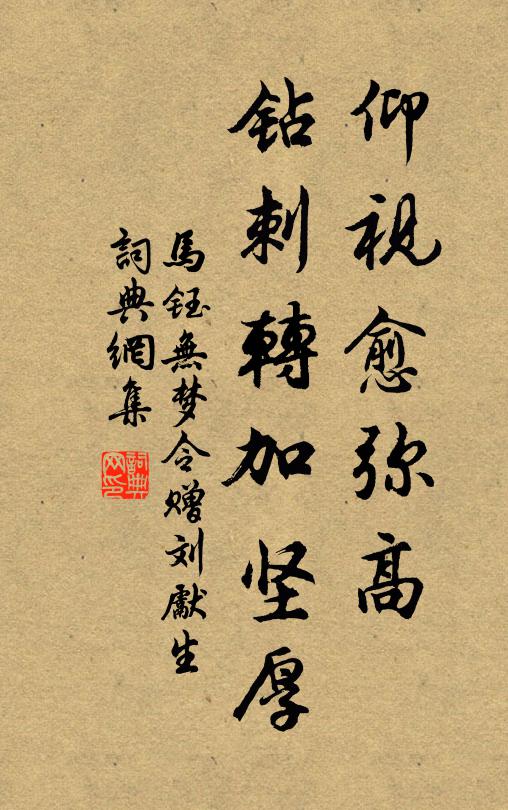 仰视愈弥高
钻刺轉加坚厚
馬钰無梦令赠刘獻生
詞典網集
詞典网印